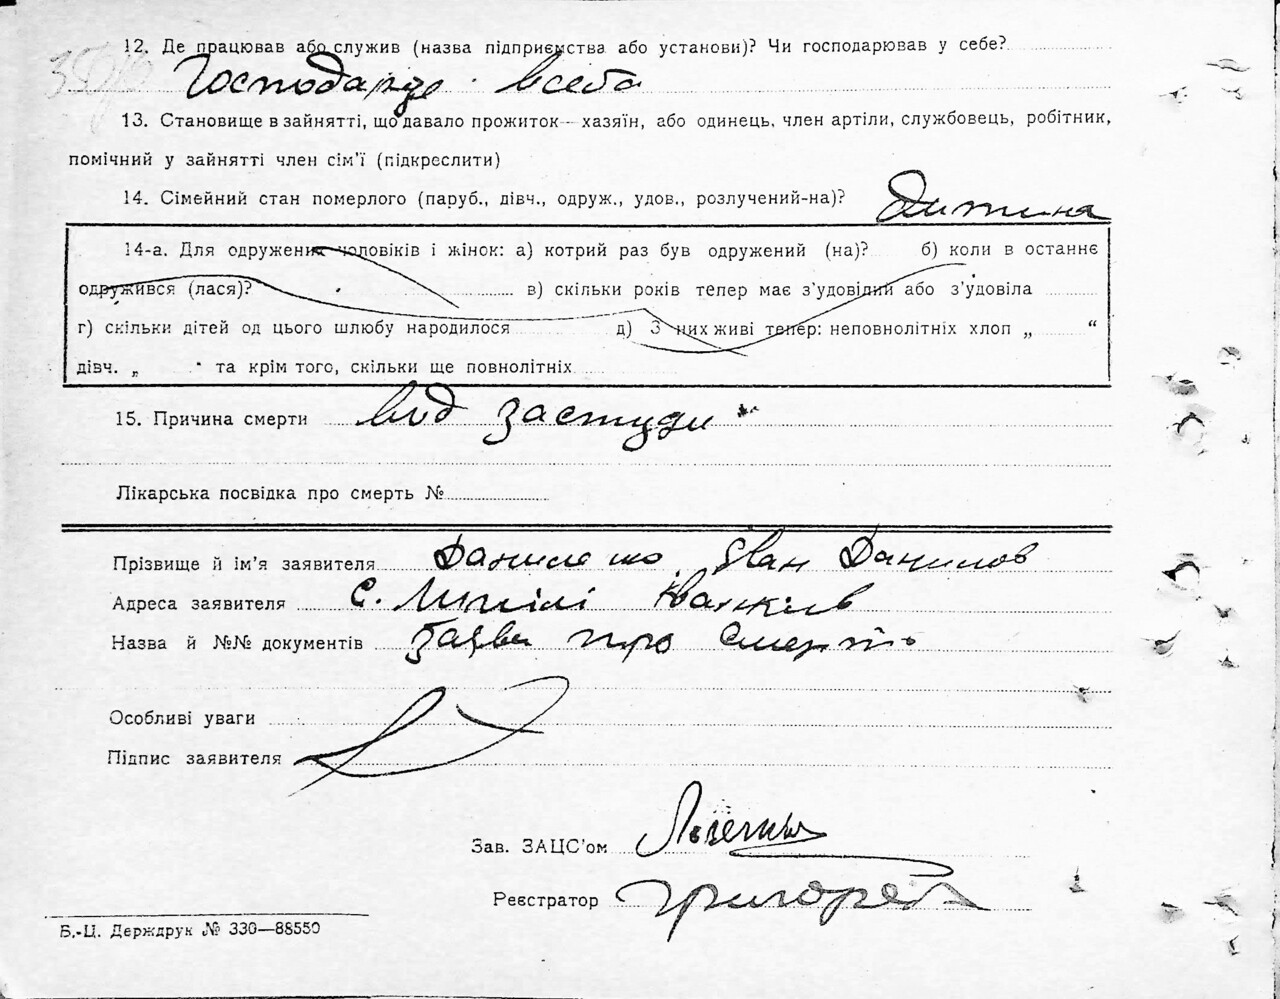 12. Де працював або служив (назва підприємства або установи)? Чи господарював у себе?
Господарує всебе
13. Становище в зайнятті, що давало прожиток — хазяїн, або одинець, член артіли, службовець, робітник,
помічний у зайнятті член сім'ї (підкреслити)
14. Сімейний стан померлого (паруб., дівч., одруж., удов., розлучений-на)? Дитина
14-а. Для одружених чоловіків і жінок: а) котрий раз був одружений (на)? б) коли в останнє
одружився (лася)? в) скільки років тепер має з'удовілий або з'удовіла
г) скільки дітей од цього шлюбу народилося д) З них живі тепер: неповнолітніх хлоп „ “
дівч. „ “ та крім того, скільки ще повнолітніх
15. Причина смерти від застуди
Лікарська посвідка про смерть №
Прізвище й ім'я заявителя Іван Данилов
Адреса заявителя С.
Назва й №№ документів Заява про смерть
Особливі уваги
Підпис заявителя
Зав. ЗАЦС'ом
Реєстратор
Б.-Ц. Держдрук № 330—88550